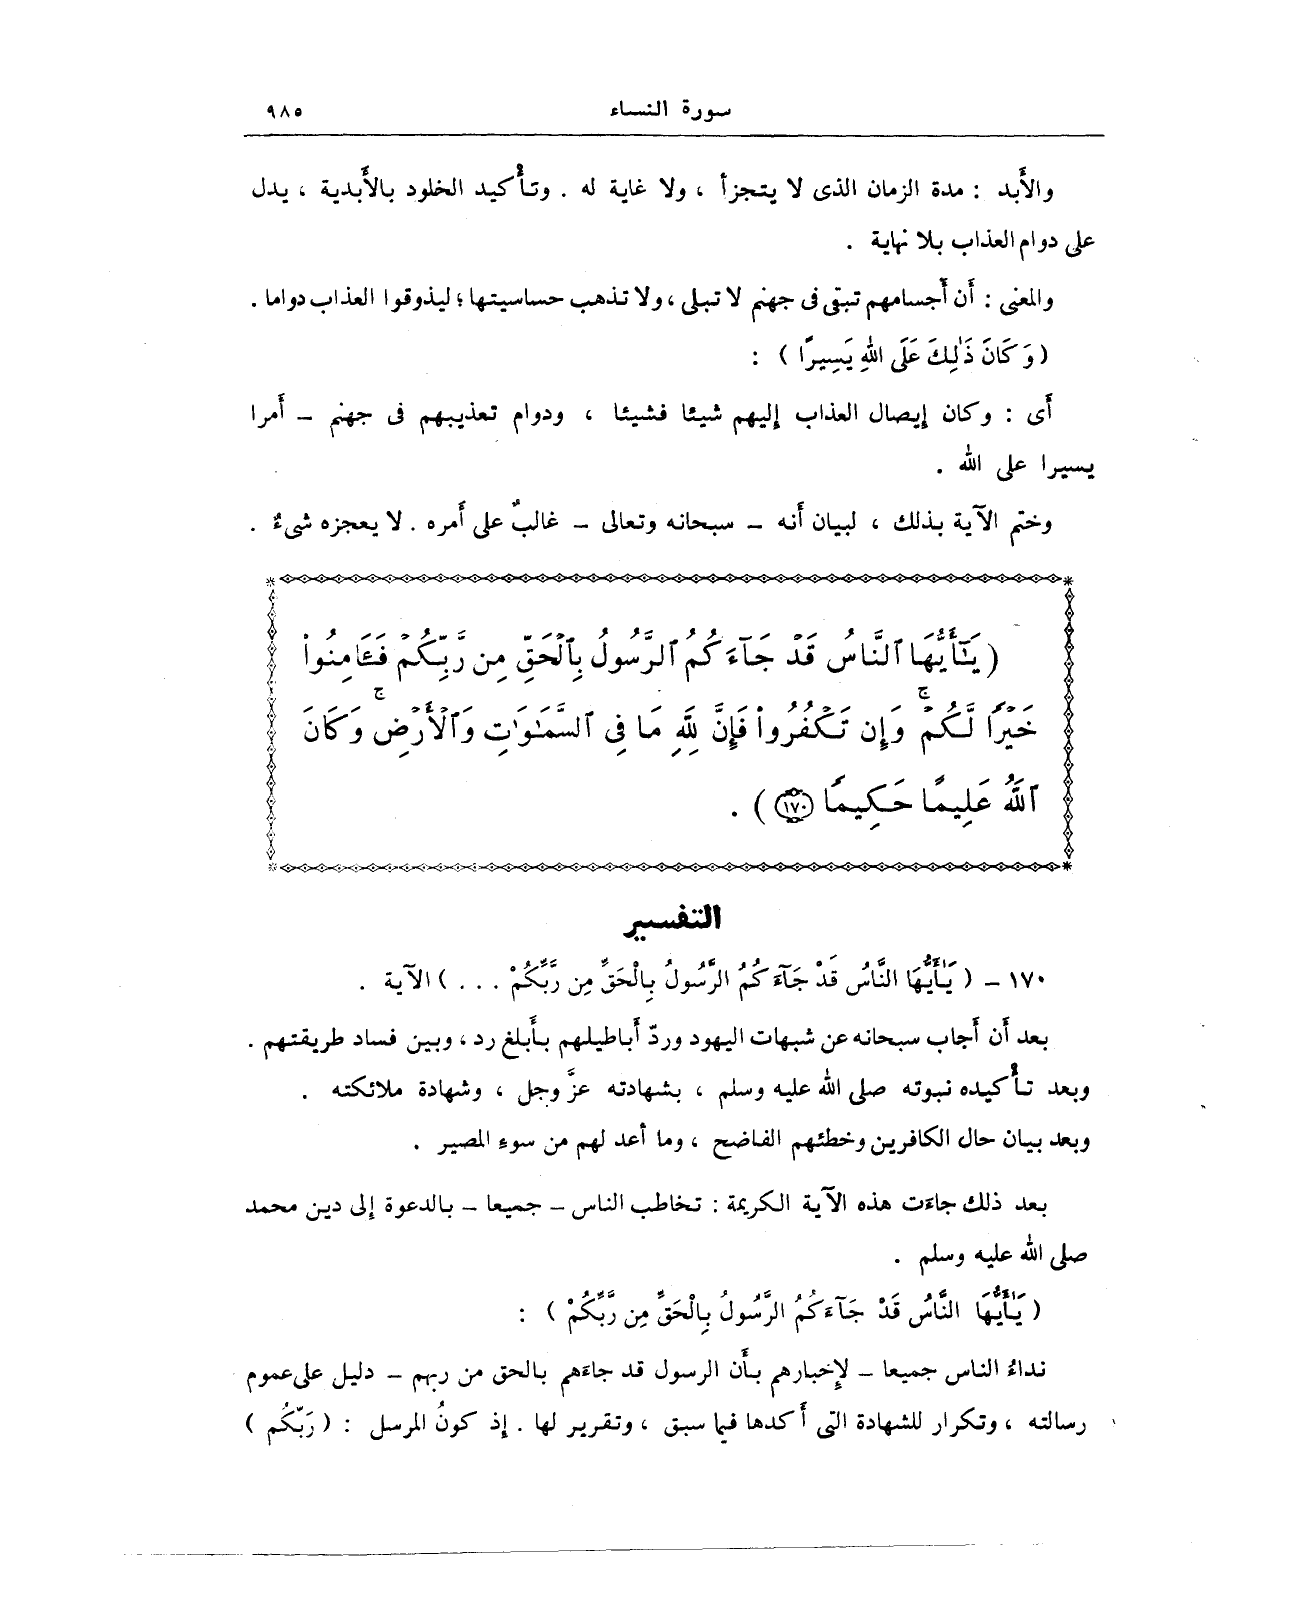 سورة النساء ٩٨٥
والأَبد : مدة الزمان الذى لا يتجزأ ، ولا غاية له . وتأْكيد الخلود بالأَبدية ، يدل
على دوام العذاب بلا نهاية .
والمعنى : أَن أَجسامهم تبقى فى جهنم لا تبلى ، ولا تذهب حساسيتها ؛ ليذوقوا العذاب دواما .
( وَكَانَ ذَٰلِكَ عَلَى اللهِ يَسِيرًا ) :
أَى : وكان إيصال العذاب إليهم شيئا فشيئا ، ودوام تعذيبهم فى جهنم – أَمرا
يسيرا على الله .
وختم الآية بذلك ، لبيان أَنه – سبحانه وتعالى – غالبٌ على أَمره . لا يعجزه شىءٌ .
( يَـٰٓأَيُّهَا ٱلنَّاسُ قَدْ جَآءَكُمُ ٱلرَّسُولُ بِٱلْحَقِّ مِن رَّبِّكُمْ فَـَٔامِنُوا۟
خَيْرًا لَّكُمْ ۚ وَإِن تَكْفُرُوا۟ فَإِنَّ لِلَّهِ مَا فِى ٱلسَّمَـٰوَٰتِ وَٱلْأَرْضِ ۚ وَكَانَ
ٱللَّهُ عَلِيمًا حَكِيمًا ١٧٠ ) .
التفسير
١٧٠ – ( يَـٰأَيُّهَا النَّاسُ قَدْ جَآءَكُمُ الرَّسُولُ بِالْحَقِّ مِن رَّبِّكُمْ . . . ) الآية .
بعد أَن أَجاب سبحانه عن شبهات اليهود وردّ أَباطيلهم بأَبلغ رد ، وبين فساد طريقتهم .
وبعد تأْكيده نبوته صلى الله عليه وسلم ، بشهادته عزَّ وجل ، وشهادة ملائكته .
وبعد بيان حال الكافرين وخطئهم الفاضح ، وما أعد لهم من سوءِ المصير .
بعد ذلك جاءَت هذه الآية الكريمة : تخاطب الناس – جميعا – بالدعوة إلى دين محمد
صلى الله عليه وسلم .
( يَـٰأَيُّهَا النَّاسُ قَدْ جَآءَكُمُ الرَّسُولُ بِالْحَقِّ مِن رَّبِّكُمْ ) :
نداءُ الناس جميعا – لإِخبارهم بأَن الرسول قد جاءَهم بالحق من ربهم – دليل على عموم
رسالته ، وتكرار للشهادة التى أَكدها فيما سبق ، وتقرير لها . إذ كونُ المرسل : ( رَبّكُم )